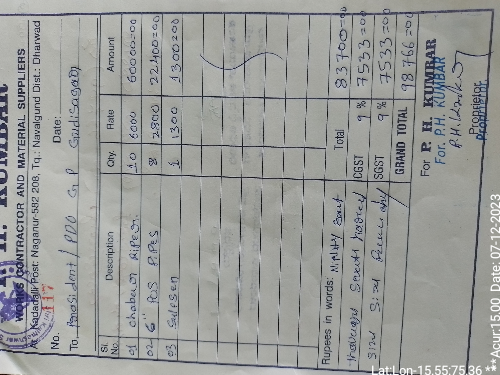 P. H. KUMBAR
WORKS CONTRACTOR AND MATERIAL SUPPLIERS
At: Kadadalli Post: Naganur-582 208, Tq.: Navalgund Dist.: Dharwad
No. Date:
To, President / PDO G P Gudisagar
Sl. No. Description Qty. Rate Amount
01 10 6000 60000=00
02 6" Pvs Pipes 8 2800 22400=00
03 1 1300 1300=00
Rupees in words: Ninty Eaet Total 83700=00
thousand Seven hundred CGST 9% 7533=00
Sixty Six SGST 9% 7533=00
GRAND TOTAL 98766=00
For P. H. KUMBAR
For. P.H. KUMBAR
P.H. Kumbar
Proprietor
Proprietor
Lat:Lon-15.55:75.36 **Acur:15.00 Date: 07-12-2023